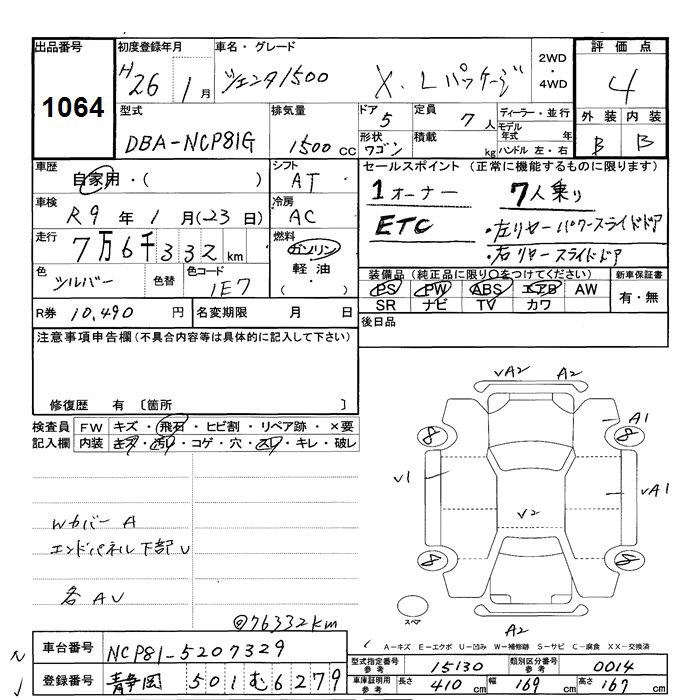 出品番号 初度登録年月 車名・グレード 2WD・4WD 評価点
1064 H26年 1月 シエンタ1500 X.Lパッケージ 4
型式 排気量 ドア 5 定員 7人 ディーラー・並行 外装 内装
DBA-NCP81G 1500cc 形状 ワゴン 積載 kg モデル年式 年 B B
ハンドル 左・右
車歴 自家用・( ) シフト AT セールスポイント (正常に機能するものに限ります)
車検 R9年 1月(23日) 冷房 AC 1オーナー 7人乗り
走行 7万6千332km 燃料 ガソリン 軽油 ( ・ ) ETC ・左リヤーパワースライドドア
・右リヤースライドドア
色 シルバー 色替 色コード 1E7
装備品(純正品に限り○をつけてください) 新車保証書
PS PW ABS エアB AW 有・無
SR ナビ TV カワ
R券 10,490円 名変期限 月 日 後日品
注意事項申告欄(不具合内容等は具体的に記入して下さい)
修復歴 有 〔箇所 〕
検査員記入欄 FW キズ・飛石・ヒビ割・リペア跡・×要
内装 キズ・汚れ・コゲ・穴・スレ・キレ・破レ
Wカバー A
エンドパネル下部 U
各 AU
@76332km
VA2 A2
A1
8 8
V1 VA1
V2
8 8
スペア
A2
A-キズ E-エクボ U-凹み W-補修跡 S-サビ C-腐食 XX-交換済
車台番号 NCP81-5207329
登録番号 静岡 501 む 6279
型式指定番号 参考 15130 類別区分番号 参考 0014
車庫証明用 参考 長さ 410cm 幅 169cm 高さ 167cm